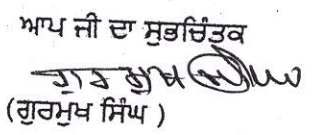 ਆਪ ਜੀ ਦਾ ਸ਼ੁਭਚਿੰਤਕ
ਗੁਰਮੁਖ ਸਿੰਘ
(ਗੁਰਮੁਖ ਸਿੰਘ )